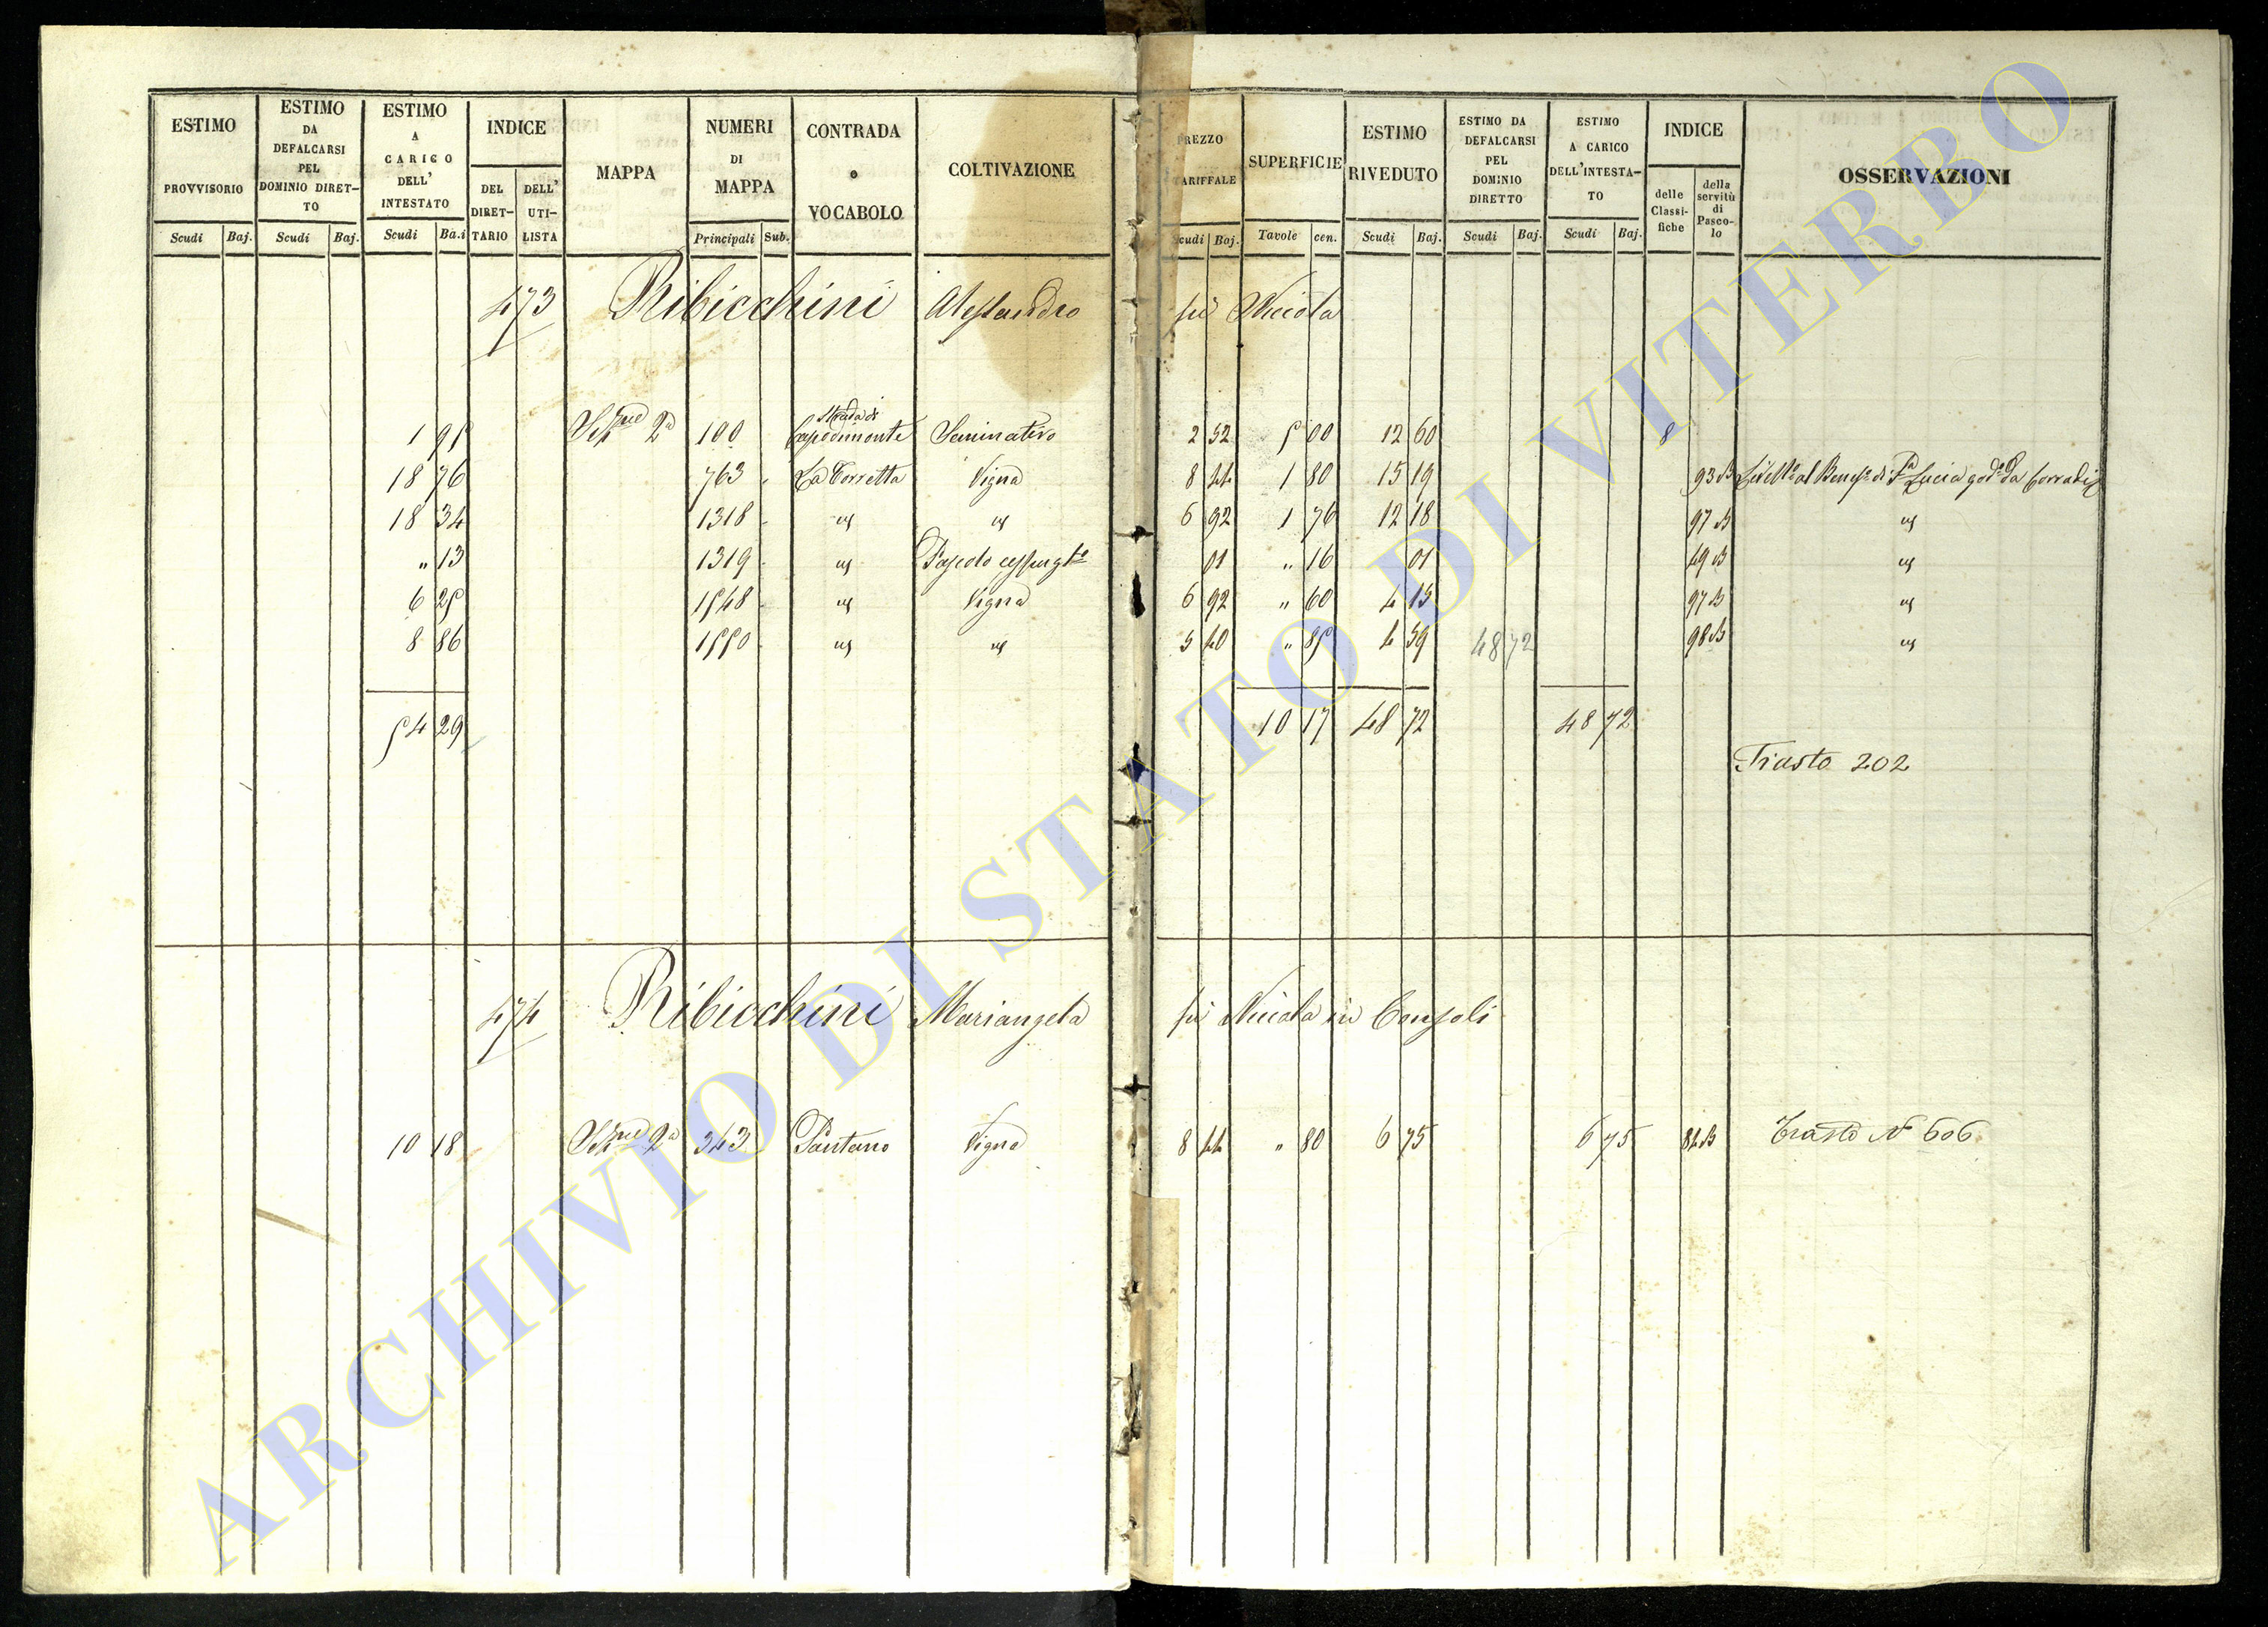 ESTIMO PROVVISORIO
ESTIMO DA DEFALCARSI PEL DOMINIO DIRET-TO
ESTIMO A CARICO DELL' INTESTATO
INDICE
DEL DIRET-TARIO
DELL' UTI-LISTA
MAPPA
NUMERI DI MAPPA
CONTRADA o VOCABOLO
COLTIVAZIONE
PREZZO TARIFFALE
SUPERFICIE
ESTIMO RIVEDUTO
ESTIMO DA DEFALCARSI PEL DOMINIO DIRETTO
ESTIMO A CARICO DELL'INTESTA-TO
INDICE
delle Classi-fiche
della servitù di Pasco-lo
OSSERVAZIONI
Scudi Baj. Scudi Baj. Scudi Ba.i Principali Sub. Scudi Baj. Tavole cen. Scudi Baj. Scudi Baj. Scudi Baj.
473 Ribicchini Alessandro fù Niccola
Strada di
1 95 Sezne 2a 100 Capodimonte Seminativo 2 52 5 00 12 60 8
18 76 763 La Torretta Vigna 8 44 1 80 15 19 93 B Livello al Benefo di Sa Lucia godo da Corradi
18 34 1318 " " 6 92 1 76 12 18 97 B "
" 13 1319 " Pascolo cespugto 01 " 16 01 49 B "
6 25 1548 " Vigna 6 92 " 60 4 15 97 B "
8 86 1550 " " 5 40 " 85 4 59 48 72 98 B "
54 29 10 17 48 72 48 72
Trasto 202
474 Ribicchini Mariangela fù Niccola in Consoli
10 18 Sezne 2a 343 Pantano Vigna 8 44 " 80 6 75 6 75 84 B Trasto N 606
ARCHIVIO DI STATO DI VITERBO